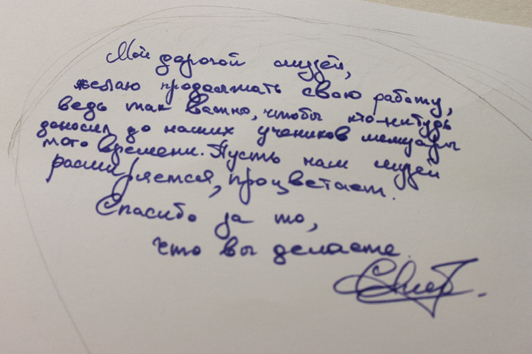 Мой дорогой музей,
желаю продолжать свою работу,
ведь так важно, чтобы кто-нибудь
доносил до наших учеников
того времени. Пусть наш музей
расширяется, процветает.
Спасибо за то,
что вы делаете.